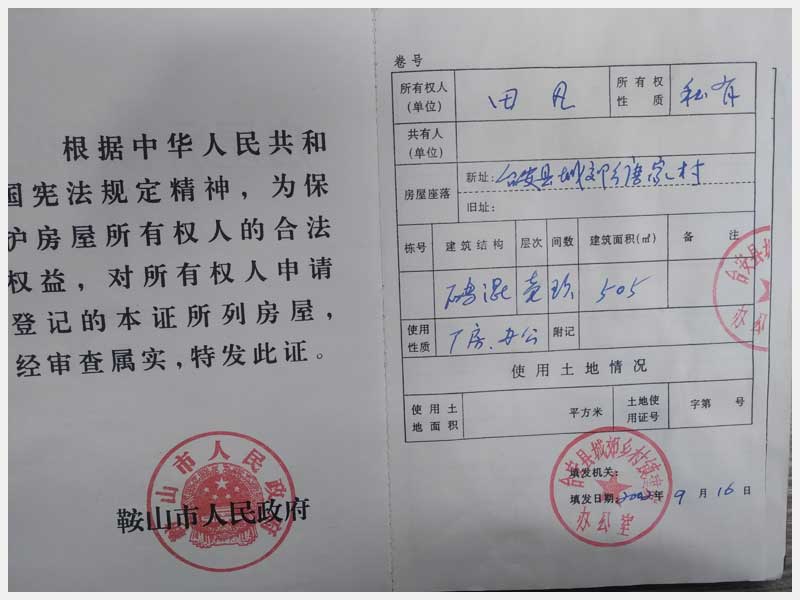 根据中华人民共和
国宪法规定精神，为保
护房屋所有权人的合法
权益，对所有权人申请
登记的本证所列房屋，
经审查属实，特发此证。
鞍山市人民政府
鞍山市人民政府
卷号
所有权人(单位) 田凡 所有权性质 私有
共有人(单位)
房屋座落 新址：台安县城郊乡唐家村
旧址：
栋号 建筑结构 层次 间数 建筑面积(㎡) 备注
砖混 壹 玖 505
使用性质 厂房、办公 附记
使用土地情况
使用土地面积 平方米 土地使用证号 字第 号
填发机关：
填发日期：2002年9月16日
台安县城郊乡村镇建
办公室
台安县城
办公